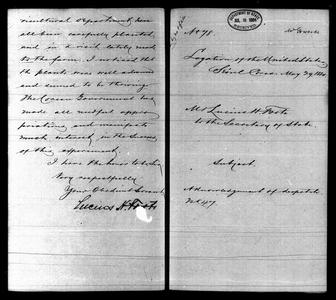 ricultural Department, have
all been carefully planted
and in a visit lately made
to the farm. I noticed that
the plants were well advanced
and seemed to be thriving.
The Corean Government has
made all needful appro-
priations, and manifests
much interest in the success
of this experiment.
I have the honor to be, Sir,
Very respectfully
Your Obedient Servant
Lucius H. Foote
No. 78.
DEPARTMENT OF STATE
RECEIVED
1884
Legation of the United States
Seoul Corea. May 29 1884
Mr Lucius H. Foote
to the Secretary of State.
Subject.
Acknowledgment of despatch
No 47